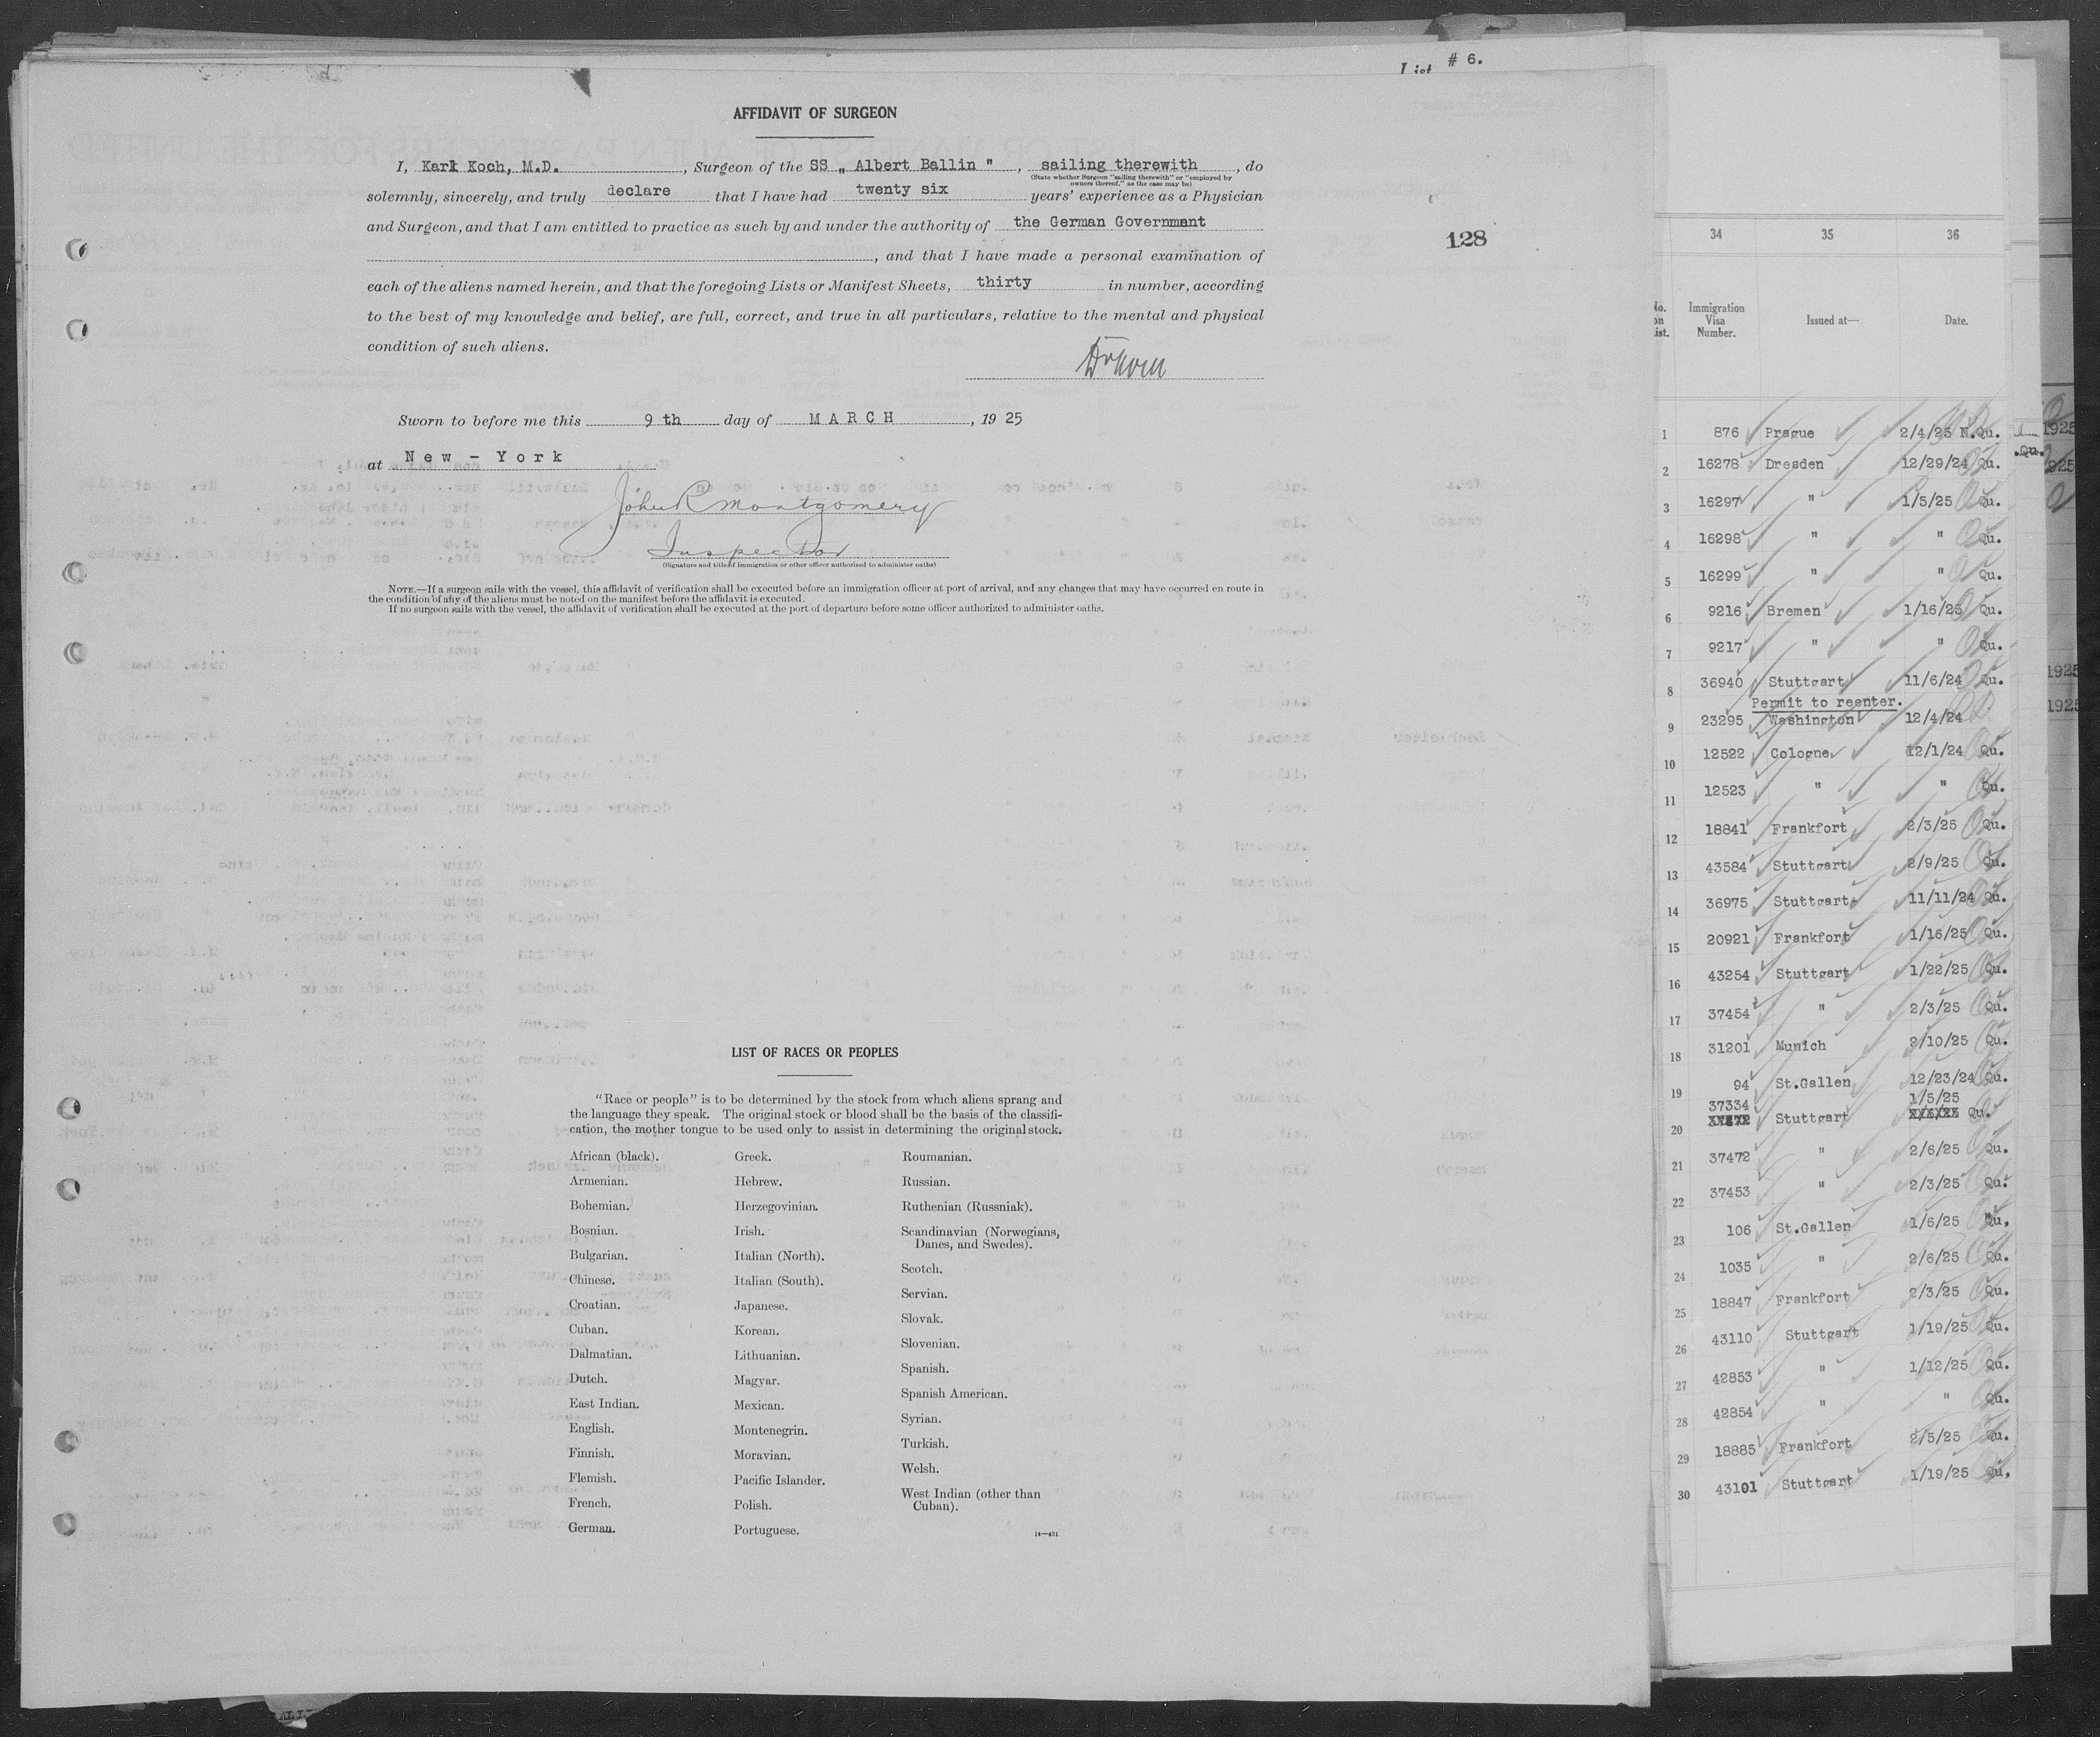 List # 6.
AFFIDAVIT OF SURGEON
I, Karl Koch, M.D. , Surgeon of the SS „ Albert Ballin " , sailing therewith , do
(State whether Surgeon "sailing therewith" or "employed by
owners thereof," as the case may be)
solemnly, sincerely, and truly declare that I have had twenty six years' experience as a Physician
and Surgeon, and that I am entitled to practice as such by and under the authority of the German Government
, and that I have made a personal examination of
each of the aliens named herein, and that the foregoing Lists or Manifest Sheets, thirty in number, according
to the best of my knowledge and belief, are full, correct, and true in all particulars, relative to the mental and physical
condition of such aliens.
Sworn to before me this 9 th day of MARCH , 19 25
at New - York
John R Montgomery
Inspector
(Signature and title of immigration or other officer authorized to administer oaths)
NOTE.—If a surgeon sails with the vessel, this affidavit of verification shall be executed before an immigration officer at port of arrival, and any changes that may have occurred en route in
the condition of any of the aliens must be noted on the manifest before the affidavit is executed.
If no surgeon sails with the vessel, the affidavit of verification shall be executed at the port of departure before some officer authorized to administer oaths.
128
LIST OF RACES OR PEOPLES
"Race or people" is to be determined by the stock from which aliens sprang and
the language they speak. The original stock or blood shall be the basis of the classifi-
cation, the mother tongue to be used only to assist in determining the original stock.
African (black).
Armenian.
Bohemian.
Bosnian.
Bulgarian.
Chinese.
Croatian.
Cuban.
Dalmatian.
Dutch.
East Indian.
English.
Finnish.
Flemish.
French.
German.
Greek.
Hebrew.
Herzegovinian.
Irish.
Italian (North).
Italian (South).
Japanese.
Korean.
Lithuanian.
Magyar.
Mexican.
Montenegrin.
Moravian.
Pacific Islander.
Polish.
Portuguese.
Roumanian.
Russian.
Ruthenian (Russniak).
Scandinavian (Norwegians,
Danes, and Swedes).
Scotch.
Servian.
Slovak.
Slovenian.
Spanish.
Spanish American.
Syrian.
Turkish.
Welsh.
West Indian (other than
Cuban).
14—431
34 35 36
No. on List. Immigration Visa Number. Issued at— Date.
1 876 Prague 2/4/25 N.Qu.
2 16278 Dresden 12/29/24 Qu.
3 16297 " 1/5/25 Qu.
4 16298 " " Qu.
5 16299 " " Qu.
6 9216 Bremen 1/16/25 Qu.
7 9217 " " Qu.
8 36940 Stuttgart 11/6/24 Qu.
Permit to reenter.
9 23295 Washington 12/4/24
10 12522 Cologne 12/1/24 Qu.
11 12523 " " Qu.
12 18841 Frankfort 2/3/25 Qu.
13 43584 Stuttgart 2/9/25 Qu.
14 36975 Stuttgart 11/11/24 Qu.
15 20921 Frankfort 1/16/25 Qu.
16 43254 Stuttgart 1/22/25 Qu.
17 37454 " 2/3/25 Qu.
18 31201 Munich 2/10/25 Qu.
19 94 St.Gallen 12/23/24 Qu.
37334 1/5/25
20 Stuttgart Qu.
21 37472 " 2/6/25 Qu.
22 37453 " 2/3/25 Qu.
23 106 St.Gallen 1/6/25 Qu.
24 1035 " 2/6/25 Qu.
25 18847 Frankfort 2/3/25 Qu.
26 43110 Stuttgart 1/19/25 Qu.
27 42853 " 1/12/25 Qu.
28 42854 " " Qu.
29 18885 Frankfort 2/5/25 Qu.
30 43101 Stuttgart 1/19/25 Qu.
1925
.Qu.
925
1925
1925